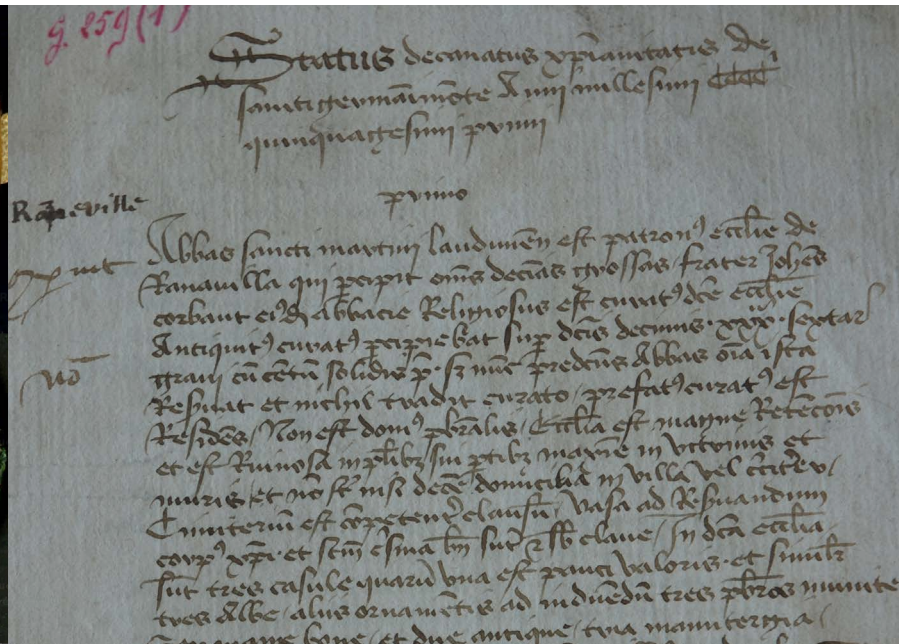 g. 259 (1)
Status decanatus xpianitatis de
sancti germani mote Anni millesimi CCCC
quinquagesimi primi
primo
Raneville
Abbas sancti martini laudunen est patron9 ecclie de
Ranavilla qui pcipit oms decias grossas frater Johes
corbaut ei9d abbacie Religiosus est curat9 dce ecclie
Antiquit9 curat9 pcipiebat sup dcis decimis xxx sextar
grani cu centu solidis p sz nuc predcus Abbas oia ista
Resvat et nichil tradit curato prefat9 curat9 est
Residens Non est dom9 pbralis Ecclia est magne Retecois
et est Ruinosa in plibz sui ptibz maxie in victrinis et
muris et no st nisi dece domicilia in villa vel circiter
Cimiteriu est copetent clausu Vasa ad Resvandum
corp9 xpi et scm crisma bn sut sb clave In dca ecclia
sut tres casule quaru una est pauci valoris et similr
tres Albe aliis ornametis ad induedu tres pbros munite
bone et due antique tria manutergia